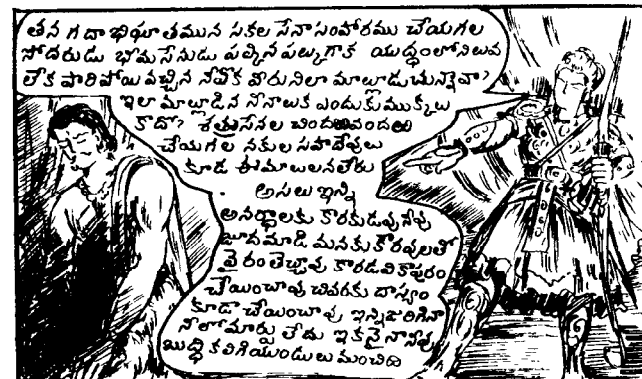 తన గదాభిఘాతమున సకల సేనాసంహారము చేయగల
సోదరుడు భీమసేనుడు పల్కిన పల్కుగాక యుద్ధంలోనిలువ
లేక పారిపోయి వచ్చిన నీవొక వీరునిలా మాట్లాడుచున్నావా?
ఇలా మాట్లాడిన నీనాలుక ఎందుకు ముక్కలు
కాదో? శత్రుసేనల చిందఱవందఱ
చేయగల నకుల సహదేవులు
కూడ ఈమాటలనలేరు
అసలు ఇన్ని
అనర్థాలకు కారకుడవు నీవు
జూదమాడి మనకు కౌరవులతో
వైరం తెచ్చావు కారడవి కాపురం
చేయించావు చివరకు దాస్యం
కూడా చేయించావు ఇన్నిజరిగినా
నీలో మార్పు లేదు ఇకనైనా నీవు
బుద్ధి కలిగియుండుట మంచిది